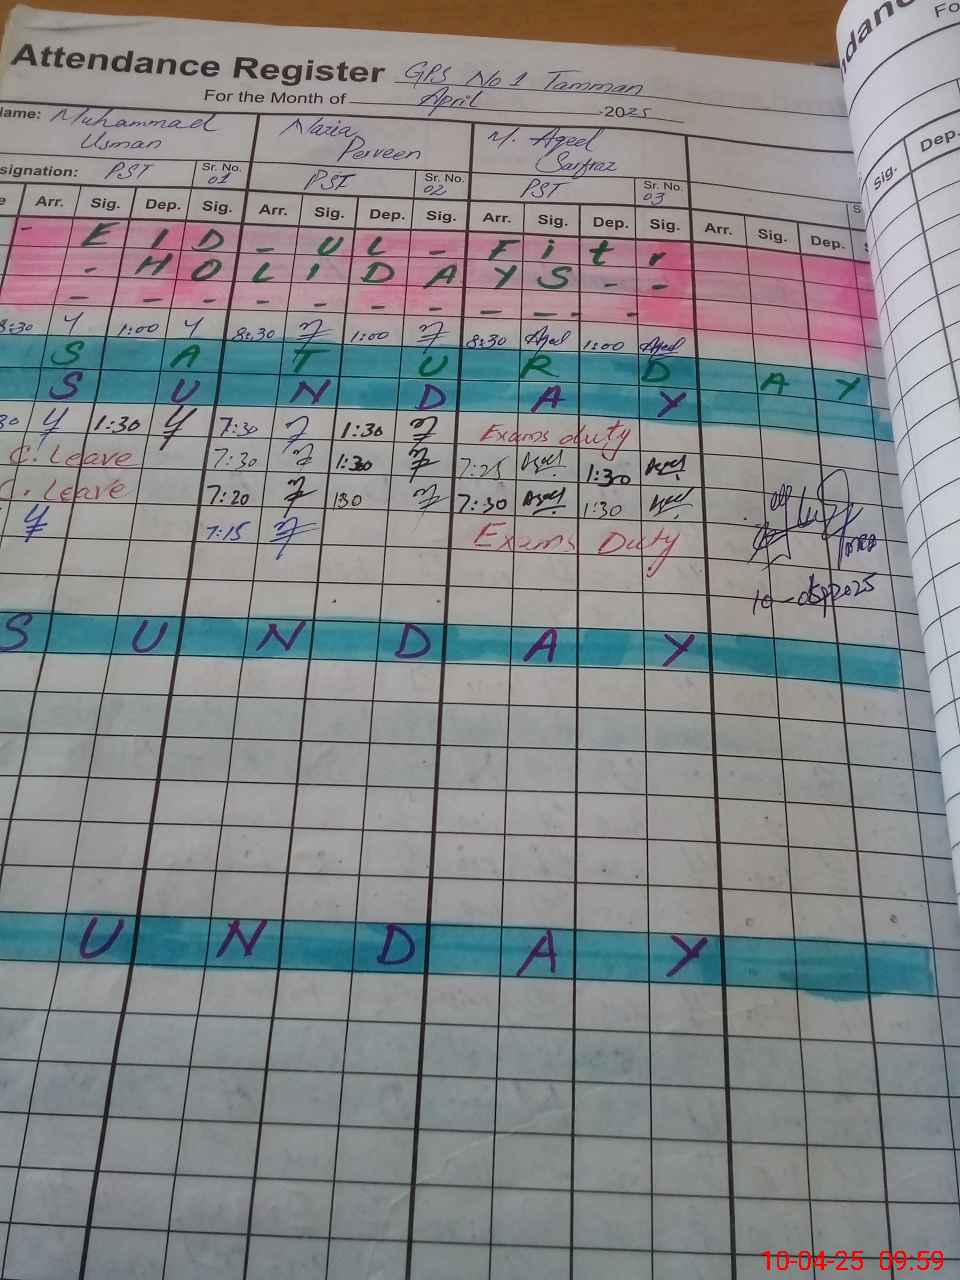 Attendance Register GPS No 1 Tamman
For the Month of April 2025
Name: Muhammad Usman Nazia Perveen M. Aqeel Sarfraz
signation: PST Sr. No. 01 PST Sr. No. 02 PST Sr. No. 03
Arr. Sig. Dep. Sig. Arr. Sig. Dep. Sig. Arr. Sig. Dep. Sig. Arr. Sig. Dep.
- EID - UL - Fitr
- HOLIDAYS - -
- - - - - - - - - -
8:30 1:00 8:30 1:00 8:30 Aqeel 1:00 Aqeel
SATURDAY
SUNDAY
30 1:30 7:30 1:30 Exams duty
C. Leave 7:30 1:30 7:25 Aqeel 1:30 Aqeel
C. Leave 7:20 130 7:30 Aqeel 1:30 Aqeel
7:15 Exams Duty
SUNDAY
UNDAY
ndance
Fo
Sig. Dep.
10-04-25 09:59